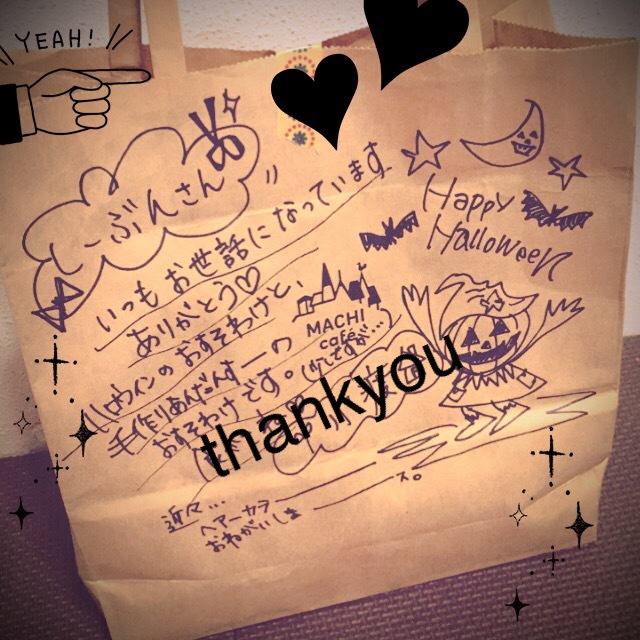 YEAH!
ぶんさん
いつもお世話になっています
ありがとう♡
ハロウィンのおすそわけと、
手作りあんだんすーの
おすそわけです。
Happy
Halloween
MACHI
café
thankyou
近々...
ヘアーカラー
おねがいしま
ス。